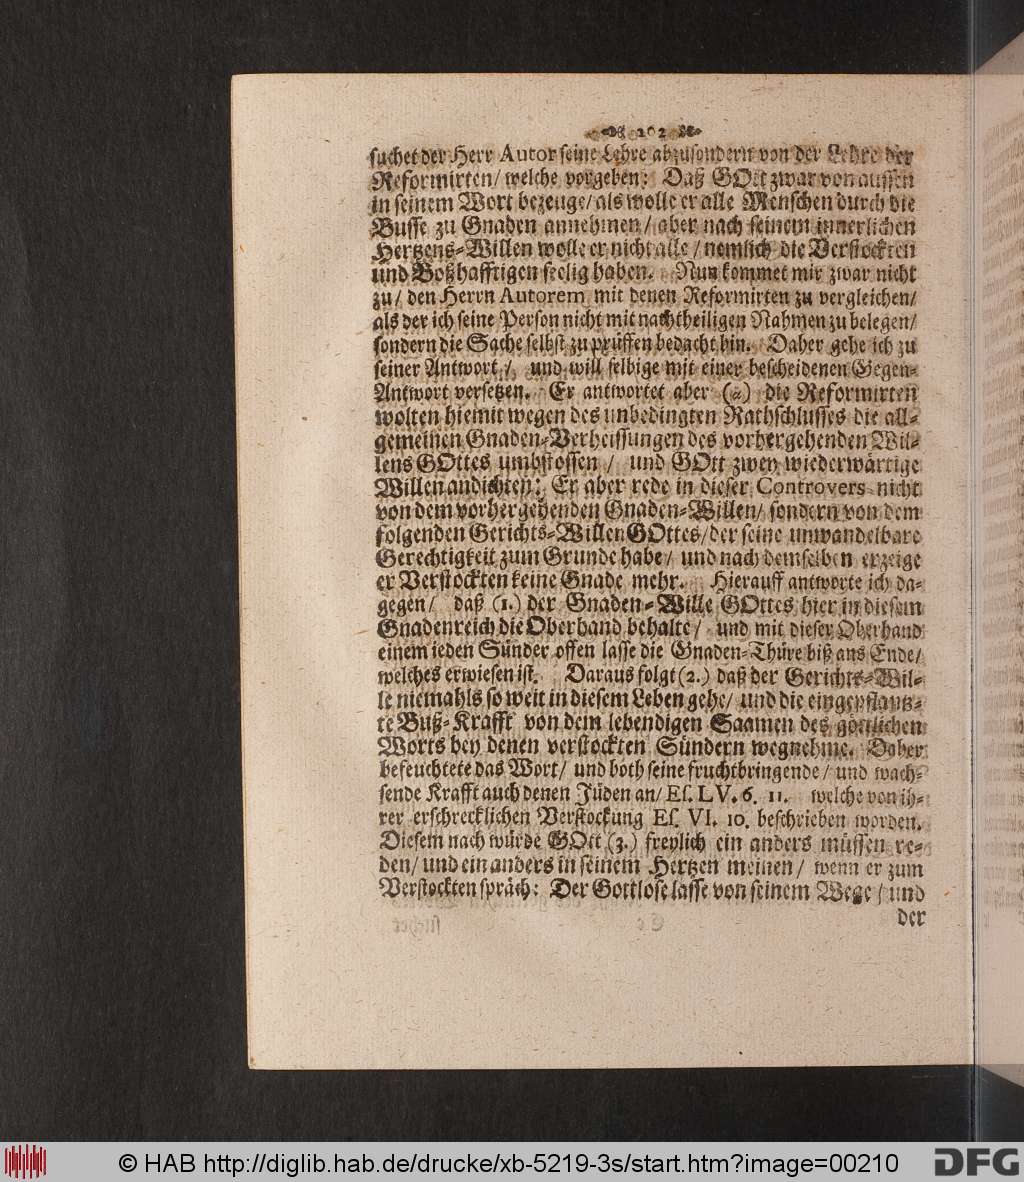 202
suchet der Herr Autor seine Lehre abzusondern von der Lehre der
Reformirten/ welche vorgeben: Daß GOtt zwar von aussen
in seinem Wort bezeuge/ als wolle er alle Menschen durch die
Busse zu Gnaden annehmen/ aber nach seinem innerlichen
Hertzens-Willen wolle er nicht alle/ nemlich die Verstockten
und Boßhafftigen seelig haben. Nun kommet mir zwar nicht
zu/ den Herrn Autorem mit denen Reformirten zu vergleichen/
als der ich seine Person nicht mit nachtheiligen Nahmen zu belegen/
sondern die Sache selbst zu prüffen bedacht bin. Daher gehe ich zu
seiner Antwort/ und will selbige mit einer bescheidenen Gegen-
Antwort versetzen. Er antwortet aber (a) die Reformirten
wolten hiemit wegen des unbedingten Rathschlusses die all-
gemeinen Gnaden-Verheissungen des vorhergehenden Wil-
lens GOttes umbstossen/ und GOtt zwey wiederwärtige
Willen andichten: Er aber rede in dieser Controvers nicht
von dem vorhergehenden Gnaden-Willen/ sondern von dem
folgenden Gerichts-Willen GOttes/ der seine unwandelbare
Gerechtigkeit zum Grunde habe/ und nach demselben erzeige
er Verstockten keine Gnade mehr. Hierauff antworte ich da-
gegen/ daß (1.) der Gnaden-Wille GOttes hier in diesem
Gnadenreich die Oberhand behalte/ und mit dieser Oberhand
einem ieden Sünder offen lasse die Gnaden-Thüre biß ans Ende/
welches erwiesen ist. Daraus folgt (2.) daß der Gerichts-Wil-
le niemahls so weit in diesem Leben gehe/ und die eingepflantz-
te Buß-Krafft von dem lebendigen Saamen des göttlichen
Worts bey denen verstockten Sündern wegnehme. Daher
befeuchtete das Wort/ und both seine fruchtbringende/ und wach-
sende Krafft auch denen Jüden an/ Es. LV. 6. 11. welche von ih-
rer erschrecklichen Verstockung Es. VI. 10. beschrieben worden.
Diesem nach würde GOtt (3.) freylich ein anders müssen re-
den/ und ein anders in seinem Hertzen meinen/ wenn er zum
Verstockten spräch: Der Gottlose lasse von seinem Wege/ und
der
© HAB http://diglib.hab.de/drucke/xb-5219-3s/start.htm?image=00210
DFG